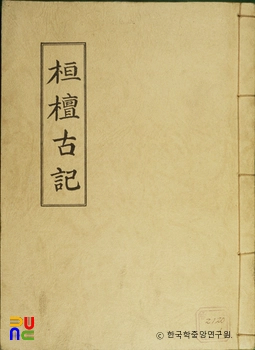 桓檀古記
© 한국학중앙연구원.